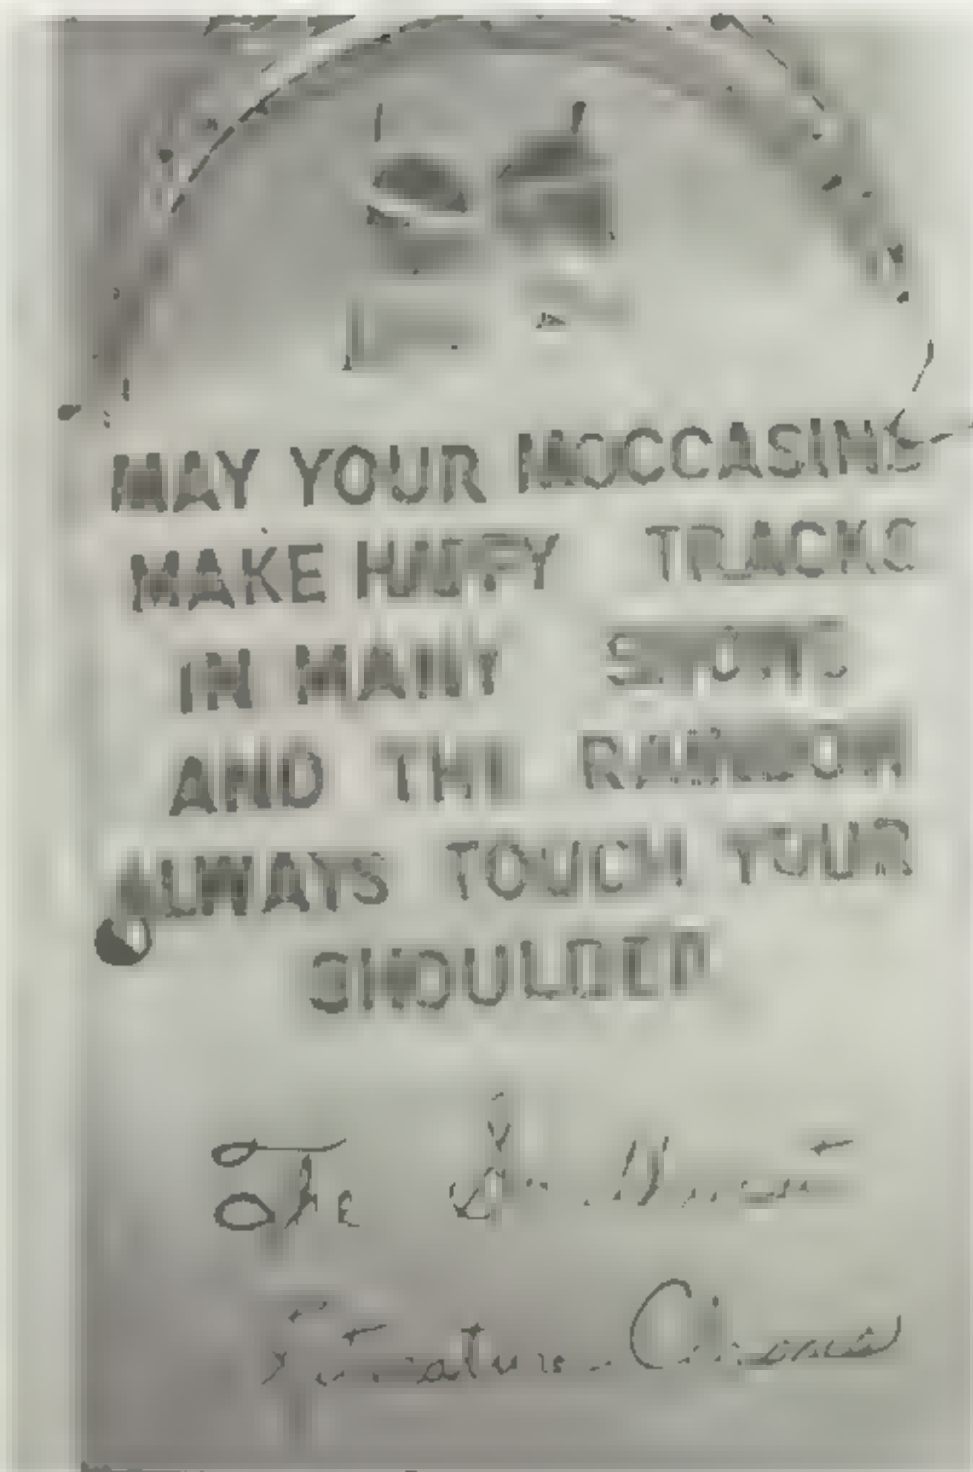 MAY YOUR MOCCASINS
MAKE HAPPY TRACKS
IN MANY SNOWS
AND THE RAINBOW
ALWAYS TOUCH YOUR
SHOULDER
The
Literature